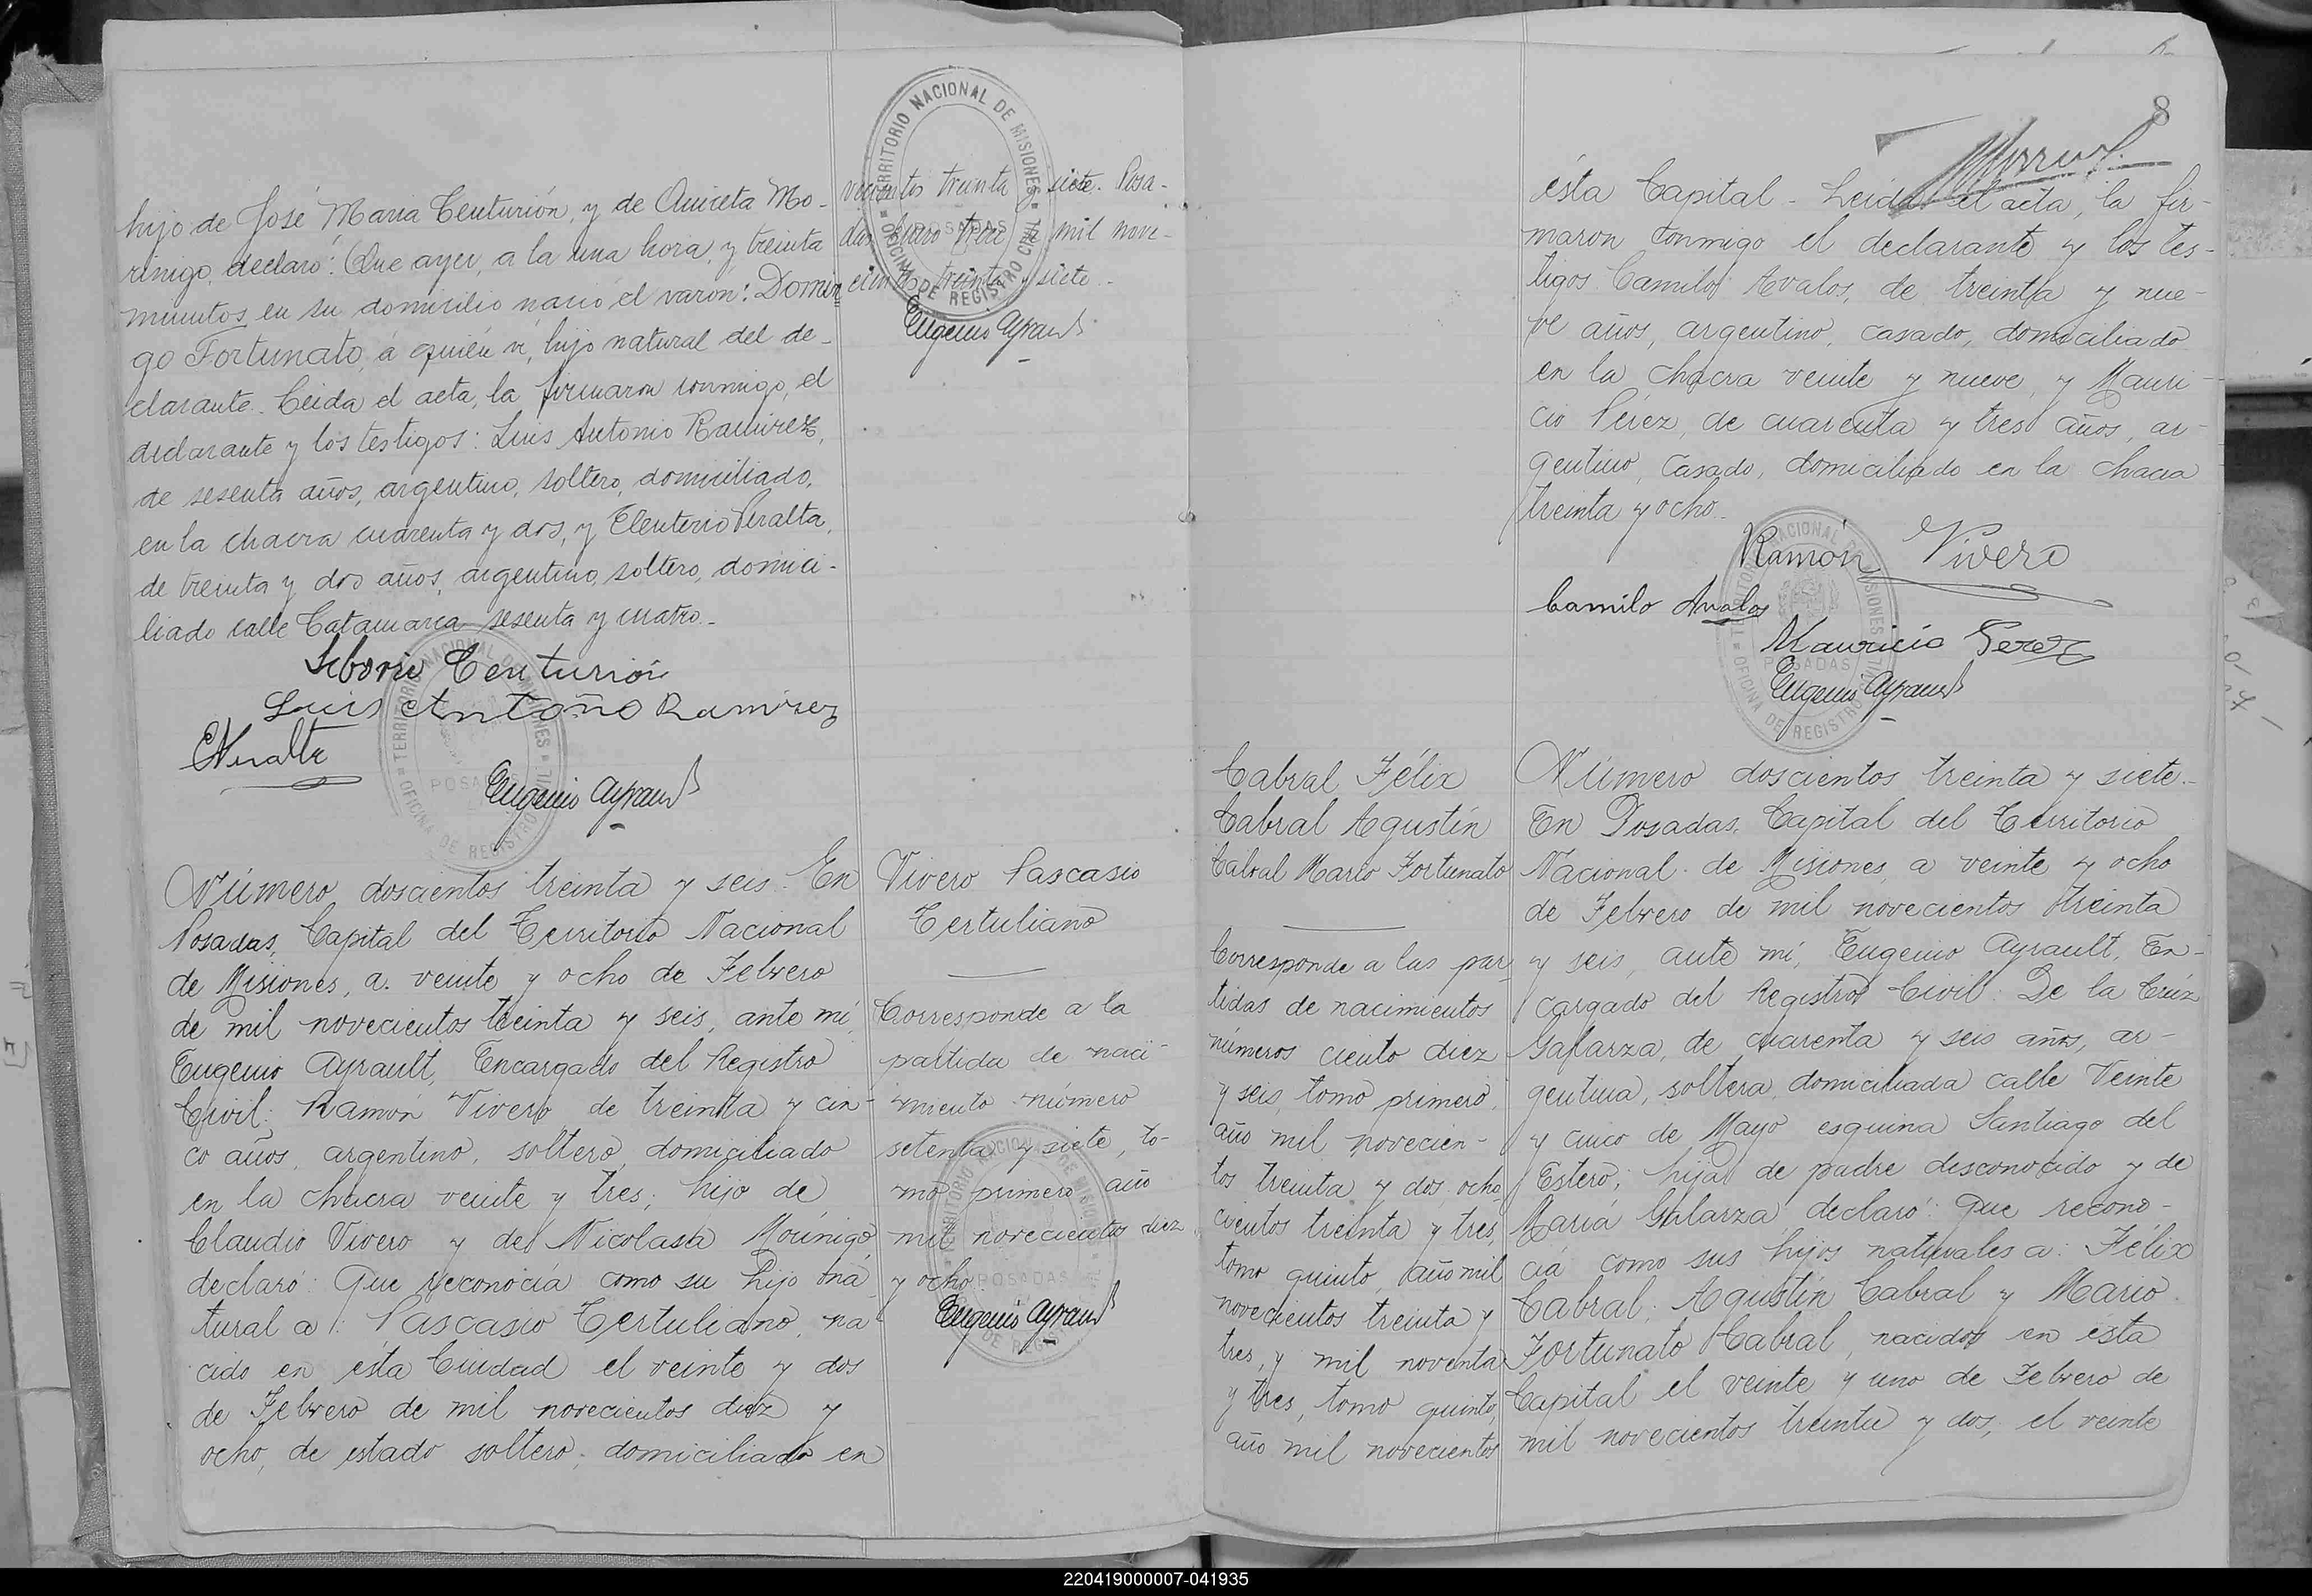 hijo de José María Centurión, y de Aniceta Mo-
rinigo, declaró: Que ayer, a la una hora, y treinta
minutos en su domicilio nació el varón: Domin
go Fortunato, á quién ví, hijo natural del de-
clarante. Leida el acta, la firmaron conmigo, el
declarante y los testigos: Luis Antonio Ramirez,
de sesenta años, argentino, soltero, domiciliado,
en la chacra cuarenta y dos, y Eleuterio Peralta,
de treinta y dos años, argentino, soltero, domici-
liado calle Catamarca sesenta y cuatro.-
Liborio Centurión
Luis Antonio Ramirez
EPeralta
Eugenio Ayrault
TERRITORIO NACIONAL DE MISIONES
POSADAS
OFICINA DE REGISTRO CIVIL
vecientos treinta y siete. Posa-
das, Enero trece mil nove-
cientos treinta y siete.-
Eugenio Ayrault
TERRITORIO NACIONAL DE MISIONES
POSADAS
OFICINA DE REGISTRO CIVIL
Número doscientos treinta y seis. En
Posadas, Capital del Territorio Nacional
de Misiones, a veinte y ocho de Febrero
de mil novecientos treinta y seis, ante mí,
Eugenio Ayrault, Encargado del Registro
Civil: Ramón Vivero, de treinta y cin-
co años, argentino, soltero, domiciliado
en la chacra veinte y tres; hijo de
Claudio Vivero y de Nicolasa Morínigo,
declaró: Que reconocía como su hijo na
tural a: Pascasio Tertuliano, na
cido en ésta Ciudad el veinte y dos
de Febrero de mil novecientos diez y
ocho, de estado soltero; domiciliado en
Vivero Pascasio
Tertuliano
Corresponde a la
partida de naci-
miento número
setenta y siete, to-
mo primero año
mil novecientos diez
y ocho.
Eugenio Ayrault
TERRITORIO NACIONAL DE MISIONES
POSADAS
8
ésta Capital - Leida el acta, la fir-
maron conmigo el declarante y los tes-
tigos Camilo Avalos, de treinta y nue-
ve años, argentino, casado, domiciliado
en la chacra veinte y nueve, y Mauri-
cio Pérez, de cuarenta y tres años, ar-
gentino, casado, domiciliado en la chacra
treinta y ocho.
Ramón Vivero
Camilo Avalos
Mauricio Perez
Eugenio Ayrault
TERRITORIO NACIONAL DE MISIONES
POSADAS
OFICINA DE REGISTRO CIVIL
Cabral Félix
Cabral Agustín
Cabral Mario Fortunato
Corresponde a las par
tidas de nacimientos
números ciento diez
y seis, tomo primero,
año mil novecien-
tos treinta y dos; ocho
cientos treinta y tres,
tomo quinto, año mil
novecientos treinta y
tres, y mil noventa
y tres, tomo quinto,
año mil novecientos
Número doscientos treinta y siete.-
En Posadas, Capital del Territorio
Nacional de Misiones, a veinte y ocho
de Febrero de mil novecientos treinta
y seis, ante mí, Eugenio Ayrault, En-
cargado del Registro Civil: De la Crúz
Galarza, de cuarenta y seis años, ar-
gentina, soltera, domiciliada calle Veinte
y cinco de Mayo esquina Santiago del
Estero; hija de padre desconocido y de
María Galarza declaró: Que recono-
cía como sus hijos naturales a: Félix
Cabral; Agustín Cabral y Mario
Fortunato Cabral, nacidos en ésta
Capital el veinte y uno de Febrero de
mil novecientos treinta y dos, el veinte
220419000007-041935